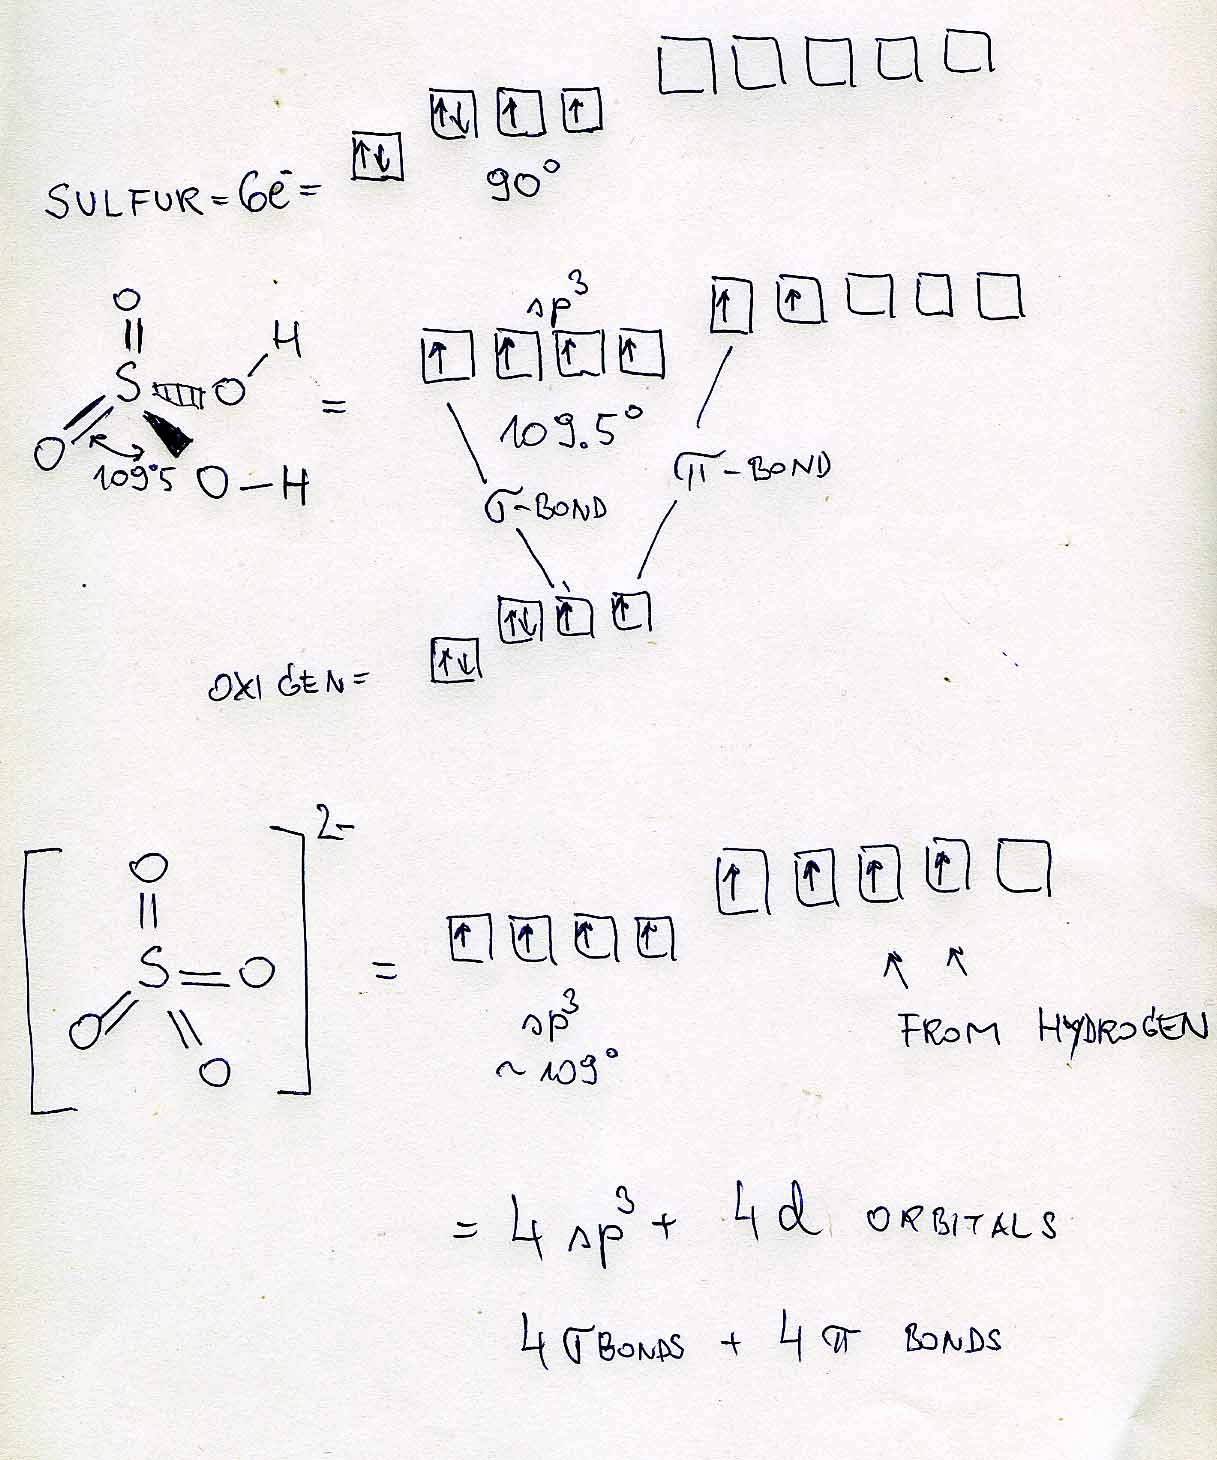 SULFUR = 6e⁻ =
90°
O
S
O
H
O
109°5
O-H
=
sp³
109.5°
σ-BOND
π-BOND
OXIGEN =
2-
O
S=O
O
O
=
sp³
~109°
FROM HYDROGEN
= 4 sp³ + 4d ORBITALS
4 σ BONDS + 4 π BONDS